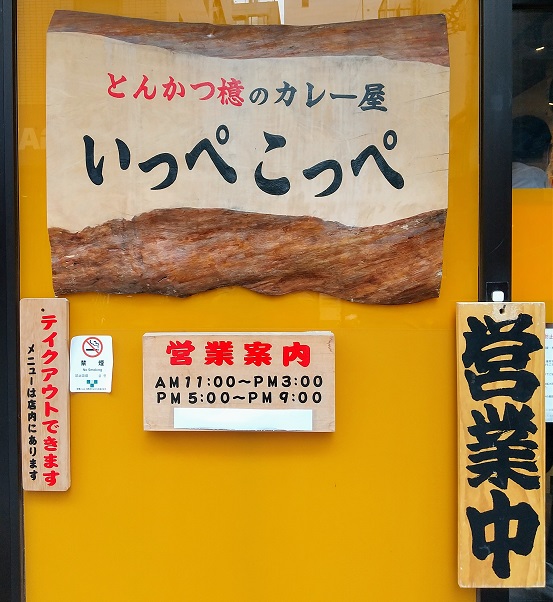 とんかつ檍のカレー屋
いっぺこっぺ
テイクアウトできます
メニューは店内にあります
禁煙
No Smoking
営業案内
AM11:00〜PM3:00
PM5:00〜PM9:00
営業中